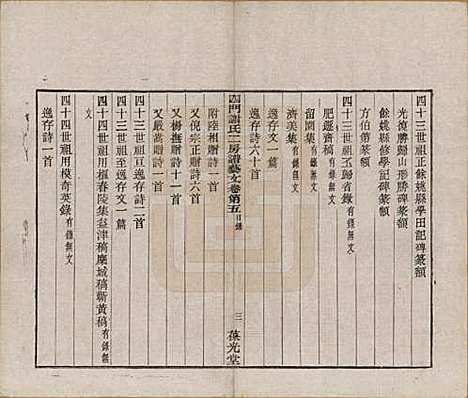 四十三世祖正餘姚縣學田記碑篆額
餘姚縣修學記碑篆額
光復勝歸山形勝碑篆額
方伯第篆額
四十三世祖丕歸省錄有錄無文
肥遯齋稿有錄無文
留園集
濟美集有錄無文
逸存文一篇
逸存詩六十首
附陸相贈詩一首
又倪宗正贈詩六首
又楊撫贈詩一首
又嚴嵩贈詩一首
四門謝氏二房譜藝文卷第五目錄
三
葆光堂
四十三世祖亘逸存詩二首
四十三世祖至逸存文一篇
四十四世祖用樞春陵集益津稿麋城稿蘄黃稿有錄無文
四十四世祖用模奇英錄有錄無文
逸存詩一首